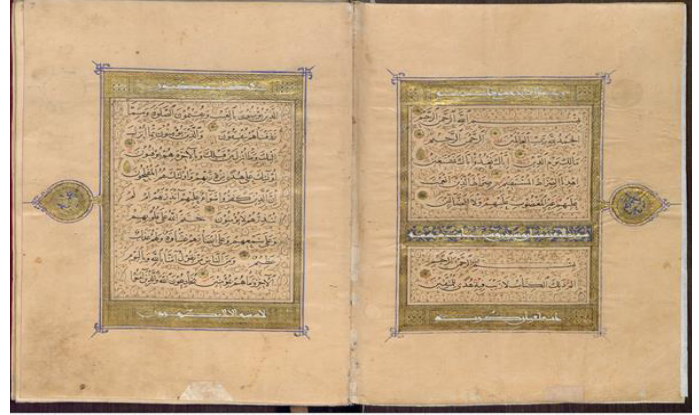 بسم الله الرحمن الرحيم
الحمد لله رب العالمين الرحمن الرحيم
مالك يوم الدين اياك نعبد واياك نستعين
اهدنا الصراط المستقيم صراط الذين انعمت
عليهم غير المغضوب عليهم ولا الضالين
بسم الله الرحمن الرحيم
الم ذلك الكتاب لا ريب فيه هدى للمتقين
انه لقران كريم
في كتاب مكنون
الذين يؤمنون بالغيب ويقيمون الصلوة ومما
رزقناهم ينفقون والذين يؤمنون بما انزل
اليك وما انزل من قبلك وبالاخرة هم يوقنون
اولئك على هدى من ربهم واولئك هم المفلحون
ان الذين كفروا سواء عليهم اانذرتهم ام لم
تنذرهم لا يؤمنون ختم الله على قلوبهم
وعلى سمعهم وعلى ابصارهم غشاوة ولهم عذاب
عظيم ومن الناس من يقول امنا بالله وباليوم
الاخر وما هم بمؤمنين يخادعون الله والذين امنوا
لا يمسه الا المطهرون